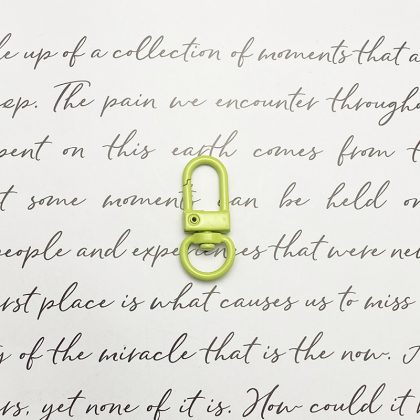 up of a collection of moments that
The pain we encounter
on this earth comes from
some moments can be held
people and experiences that were
place is what causes us to miss
of the miracle that is the now.
yet none of it is. How could it